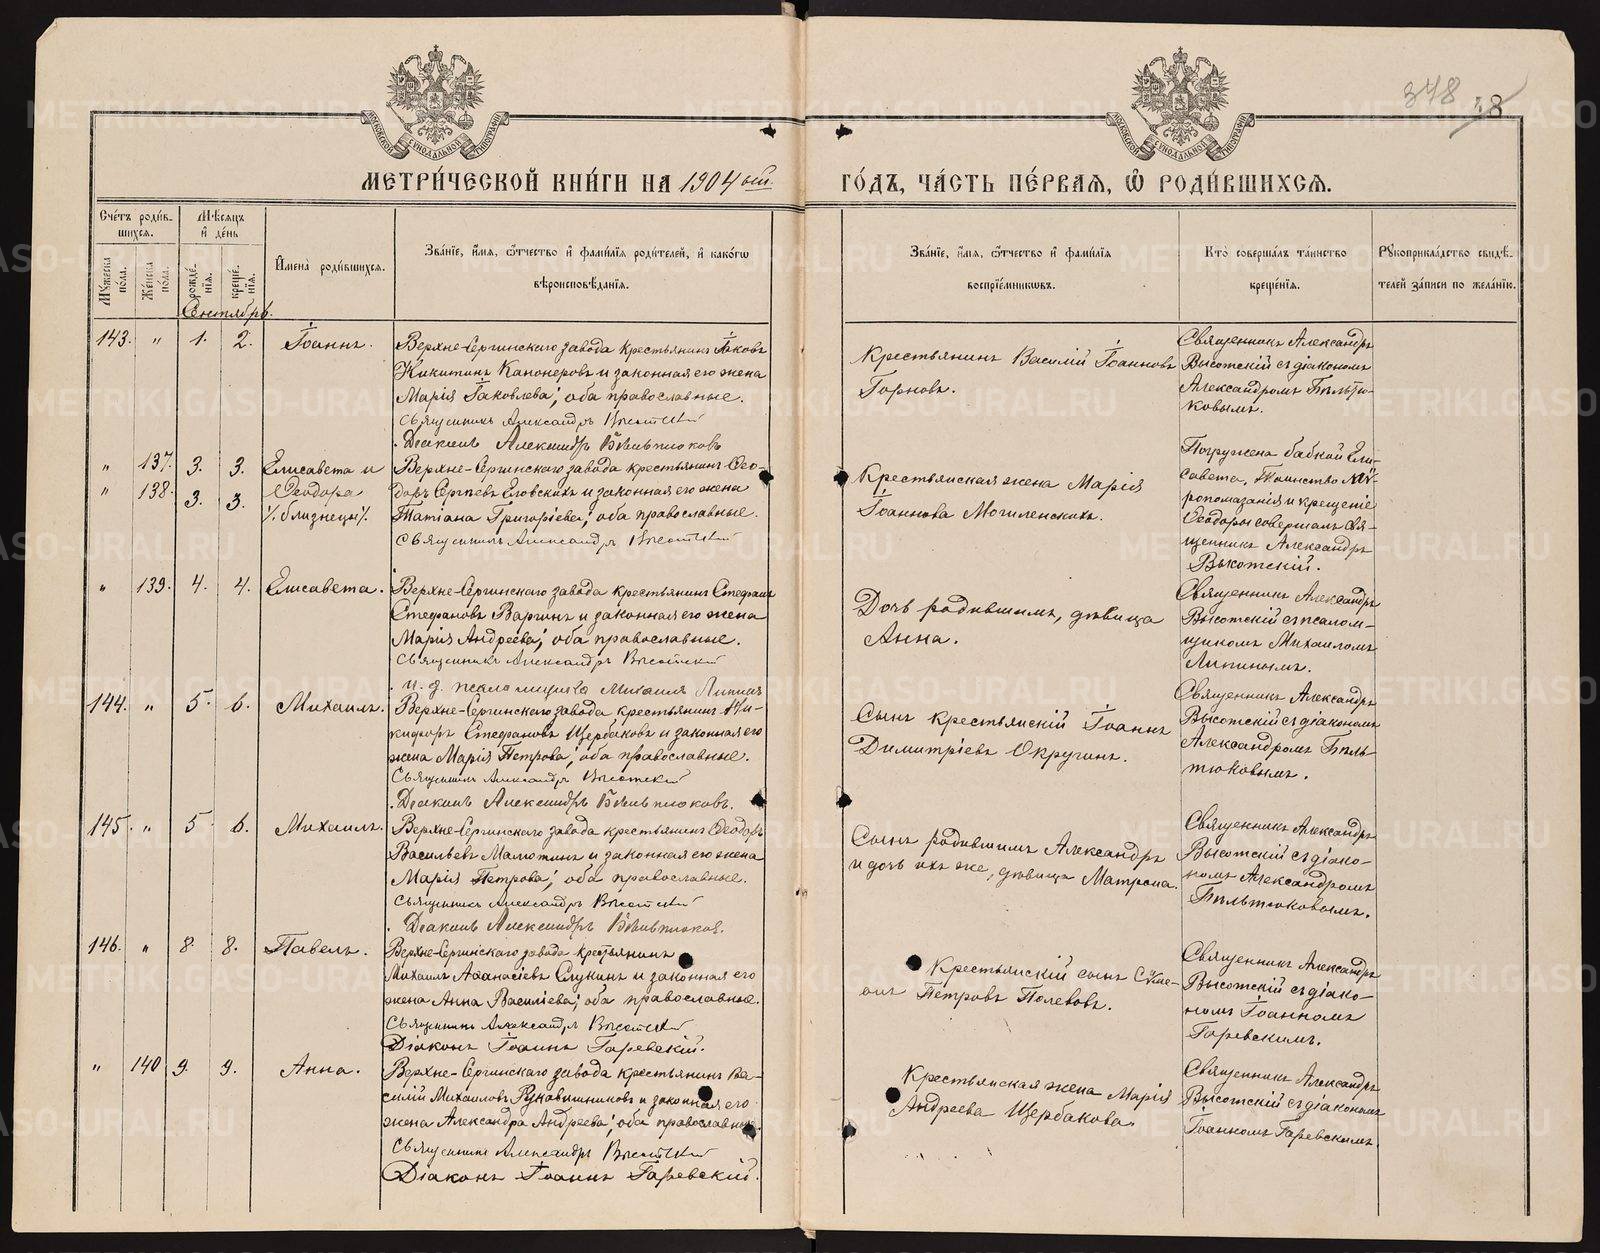 348
58
МОСКОВСКОЙ СѴНОДАЛЬНОЙ ТИПОГРАФІИ
МОСКОВСКОЙ СѴНОДАЛЬНОЙ ТИПОГРАФІИ
МЕТРИ́ЧЕСКОЙ КНИ́ГИ НА 1904 ый
ГО́ДЪ, ЧА́СТЬ ПЕ́РВАЯ, Ѽ РОДИ́ВШИХСЯ.
Сче́тъ роди́в-
шихся.
Мѣ́сяцъ
и҆ де́нь
Му́жеска по́ла.
Же́нска по́ла.
рожде́нїя.
креще́нїя.
И҆мена̀ роди́вшихся.
Зва́нїе, и҆́мя, ѻ҆́тчество и҆ фами́лїя роди́телей, и҆ како́гѡ
вѣроисповѣ́данїя.
Зва́нїе, и҆́мя, ѻ҆́тчество и҆ фами́лїя
воспрїе́мникѡвъ.
Кто̀ соверша́лъ та́инство
креще́нїя.
Рꙋкоприкла́дство свидѣ́-
телей за́писи по жела́нїю.
Сентябрь.
143. " 1. 2. Іоаннъ.
Верхне-Сергинскаго завода крестьянинъ Іаковъ
Никитинъ Канонеровъ и законная его жена
Марія Іаковлева; оба православные.
Священникъ Александръ Высотскій
Діаконъ Александръ Бѣльтюковъ
Крестьянинъ Василій Іоанновъ
Горновъ.
Священникъ Александръ
Высотскій съ діакономъ
Александромъ Бѣльтю-
ковымъ.
" 137. 3. 3. Елисавета и
" 138. 3. 3. Ѳеодора
"/. близнецы"/.
Верхне-Сергинскаго завода крестьянинъ Ѳео-
доръ Сергѣевъ Еловскихъ и законная его жена
Татіана Григоріева; оба православные.
Священникъ Александръ Высотскій
Крестьянская жена Марія
Іоаннова Могиленскихъ.
Погружена бабкой Ели-
савета, Таинство Мѵ-
ропомазанія и крещеніе
Ѳеодоры совершалъ Свя-
щенникъ Александръ
Высотскій.
" 139. 4. 4. Елисавета.
Верхне-Сергинскаго завода крестьянинъ Стефанъ
Стефановъ Варгинъ и законная его жена
Марія Андреева; оба православные.
Священникъ Александръ Высотскій
и. д. псаломщика Михаилъ Липинъ
Дочь родившимъ, дѣвица
Анна.
Священникъ Александръ
Высотскій съ псалом-
щикомъ Михаиломъ
Липинымъ.
144. " 5. 6. Михаилъ.
Верхне-Сергинскаго завода крестьянинъ Ни-
кифоръ Стефановъ Щербаковъ и законная его
жена Марія Петрова; оба православные.
Священникъ Александръ Высотскій
Діаконъ Александръ Бѣльтюковъ.
Сынъ крестьянскій Іоаннъ
Димитріевъ Округинъ.
Священникъ Александръ
Высотскій съ діакономъ
Александромъ Бѣль-
тюковымъ.
145. " 5. 6. Михаилъ.
Верхне-Сергинскаго завода крестьянинъ Ѳеодоръ
Васильевъ Малютинъ и законная его жена
Марія Петрова; оба православные.
Священникъ Александръ Высотскій
Діаконъ Александръ Бѣльтюковъ.
Сынъ родившимъ Александръ
и дочь ихъ же, дѣвица Матрона.
Священникъ Александръ
Высотскій съ діако-
номъ Александромъ
Бѣльтюковымъ.
146. " 8. 8. Павелъ.
Верхне-Сергинскаго завода крестьянинъ
Михаилъ Аѳанасіевъ Слукинъ и законная его
жена Анна Василіева; оба православные.
Священникъ Александръ Высотскій
Діаконъ Іоаннъ Гаревскій.
Крестьянскій сынъ Сѵме-
онъ Петровъ Полевовъ.
Священникъ Александръ
Высотскій съ діако-
номъ Іоанномъ
Гаревскимъ.
" 140 9. 9. Анна.
Верхне-Сергинскаго завода крестьянинъ Ва-
силій Михаиловъ Рукавишниковъ и законная его
жена Александра Андреева; оба православные.
Священникъ Александръ Высотскій
Діаконъ Іоаннъ Гаревскій.
Крестьянская жена Марія
Андреева Щербакова
Священникъ Александръ
Высотскій съ діакономъ
Іоанномъ Гаревскимъ.
METRIKI.GASO-URAL.RU